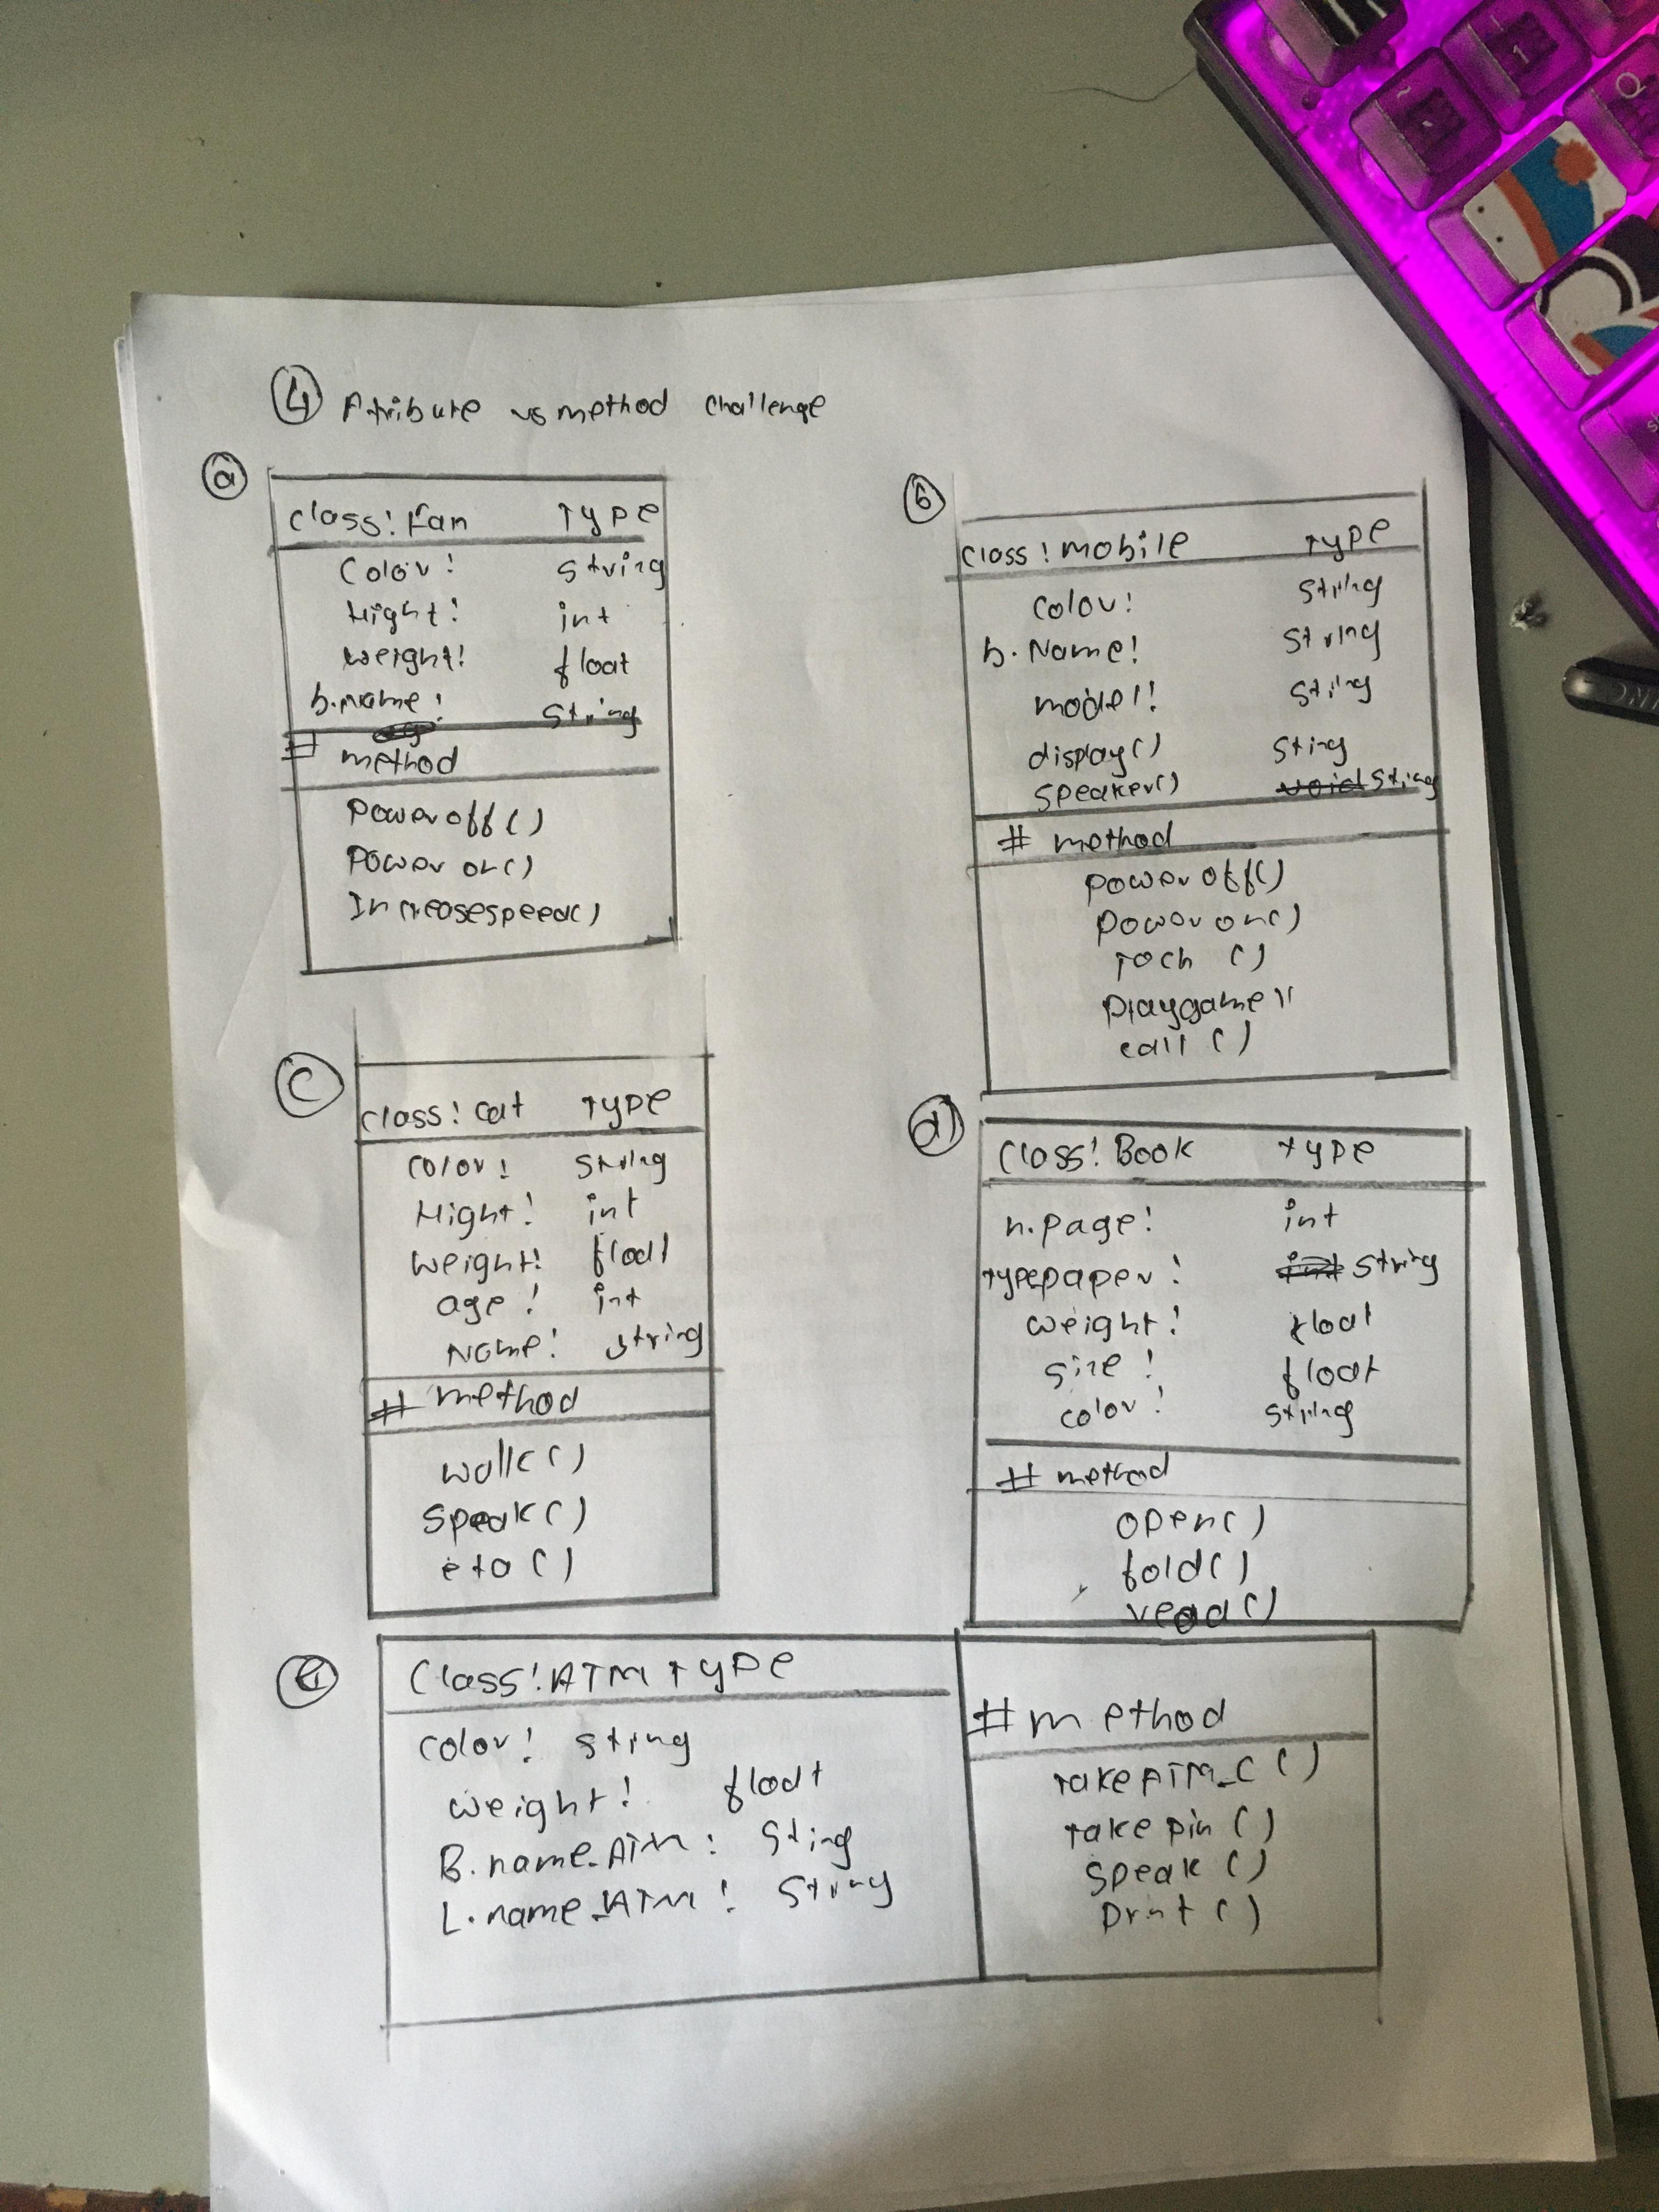 ④ Atribute vs method challenge
ⓐ
class: Fan Type
Color: string
Hight: int
weight: float
b.name: String
# method
Poweroff()
Power on()
Increasespeed()
ⓑ
class: mobile Type
Color: String
b.Name: String
model: String
display() Sting
Speaker() void Sting
# method
Power off()
Power on()
Toch ()
Playgame()
call ()
ⓒ
class: cat Type
Color: String
Hight: int
weight: float
age: int
Name: string
# method
walk()
Speak()
eta()
ⓓ
Class: Book Type
n.page: int
typepaper: int String
weight: float
size: float
color: string
# method
open()
fold()
read()
ⓔ
Class: ATM Type
Color: sting
weight: float
B.name_ATM: Sting
L.name_ATM: String
# method
TakeATM_C ()
Take Pin ()
Speak ()
Print ()
~
1
Q